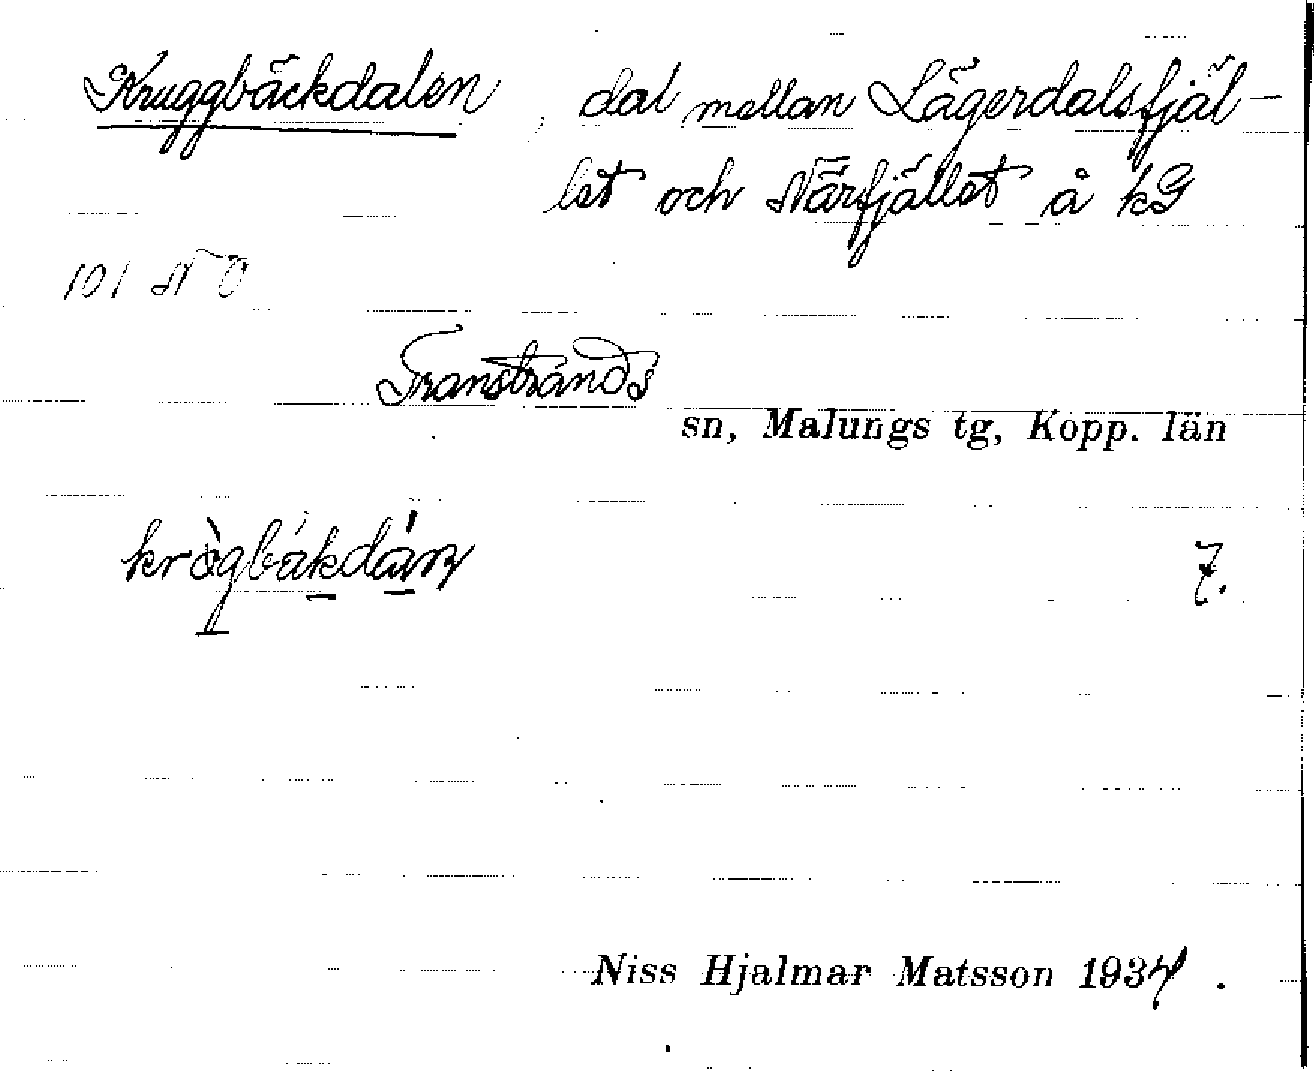 Kruggbäckdalen, dal mellan Lägerdalsfjäl-
let och Närfjället å kG
101 NO
Transtrands
sn, Malungs tg, Kopp. län
krògbákdán 7.
Niss Hjalmar Matsson 1934.